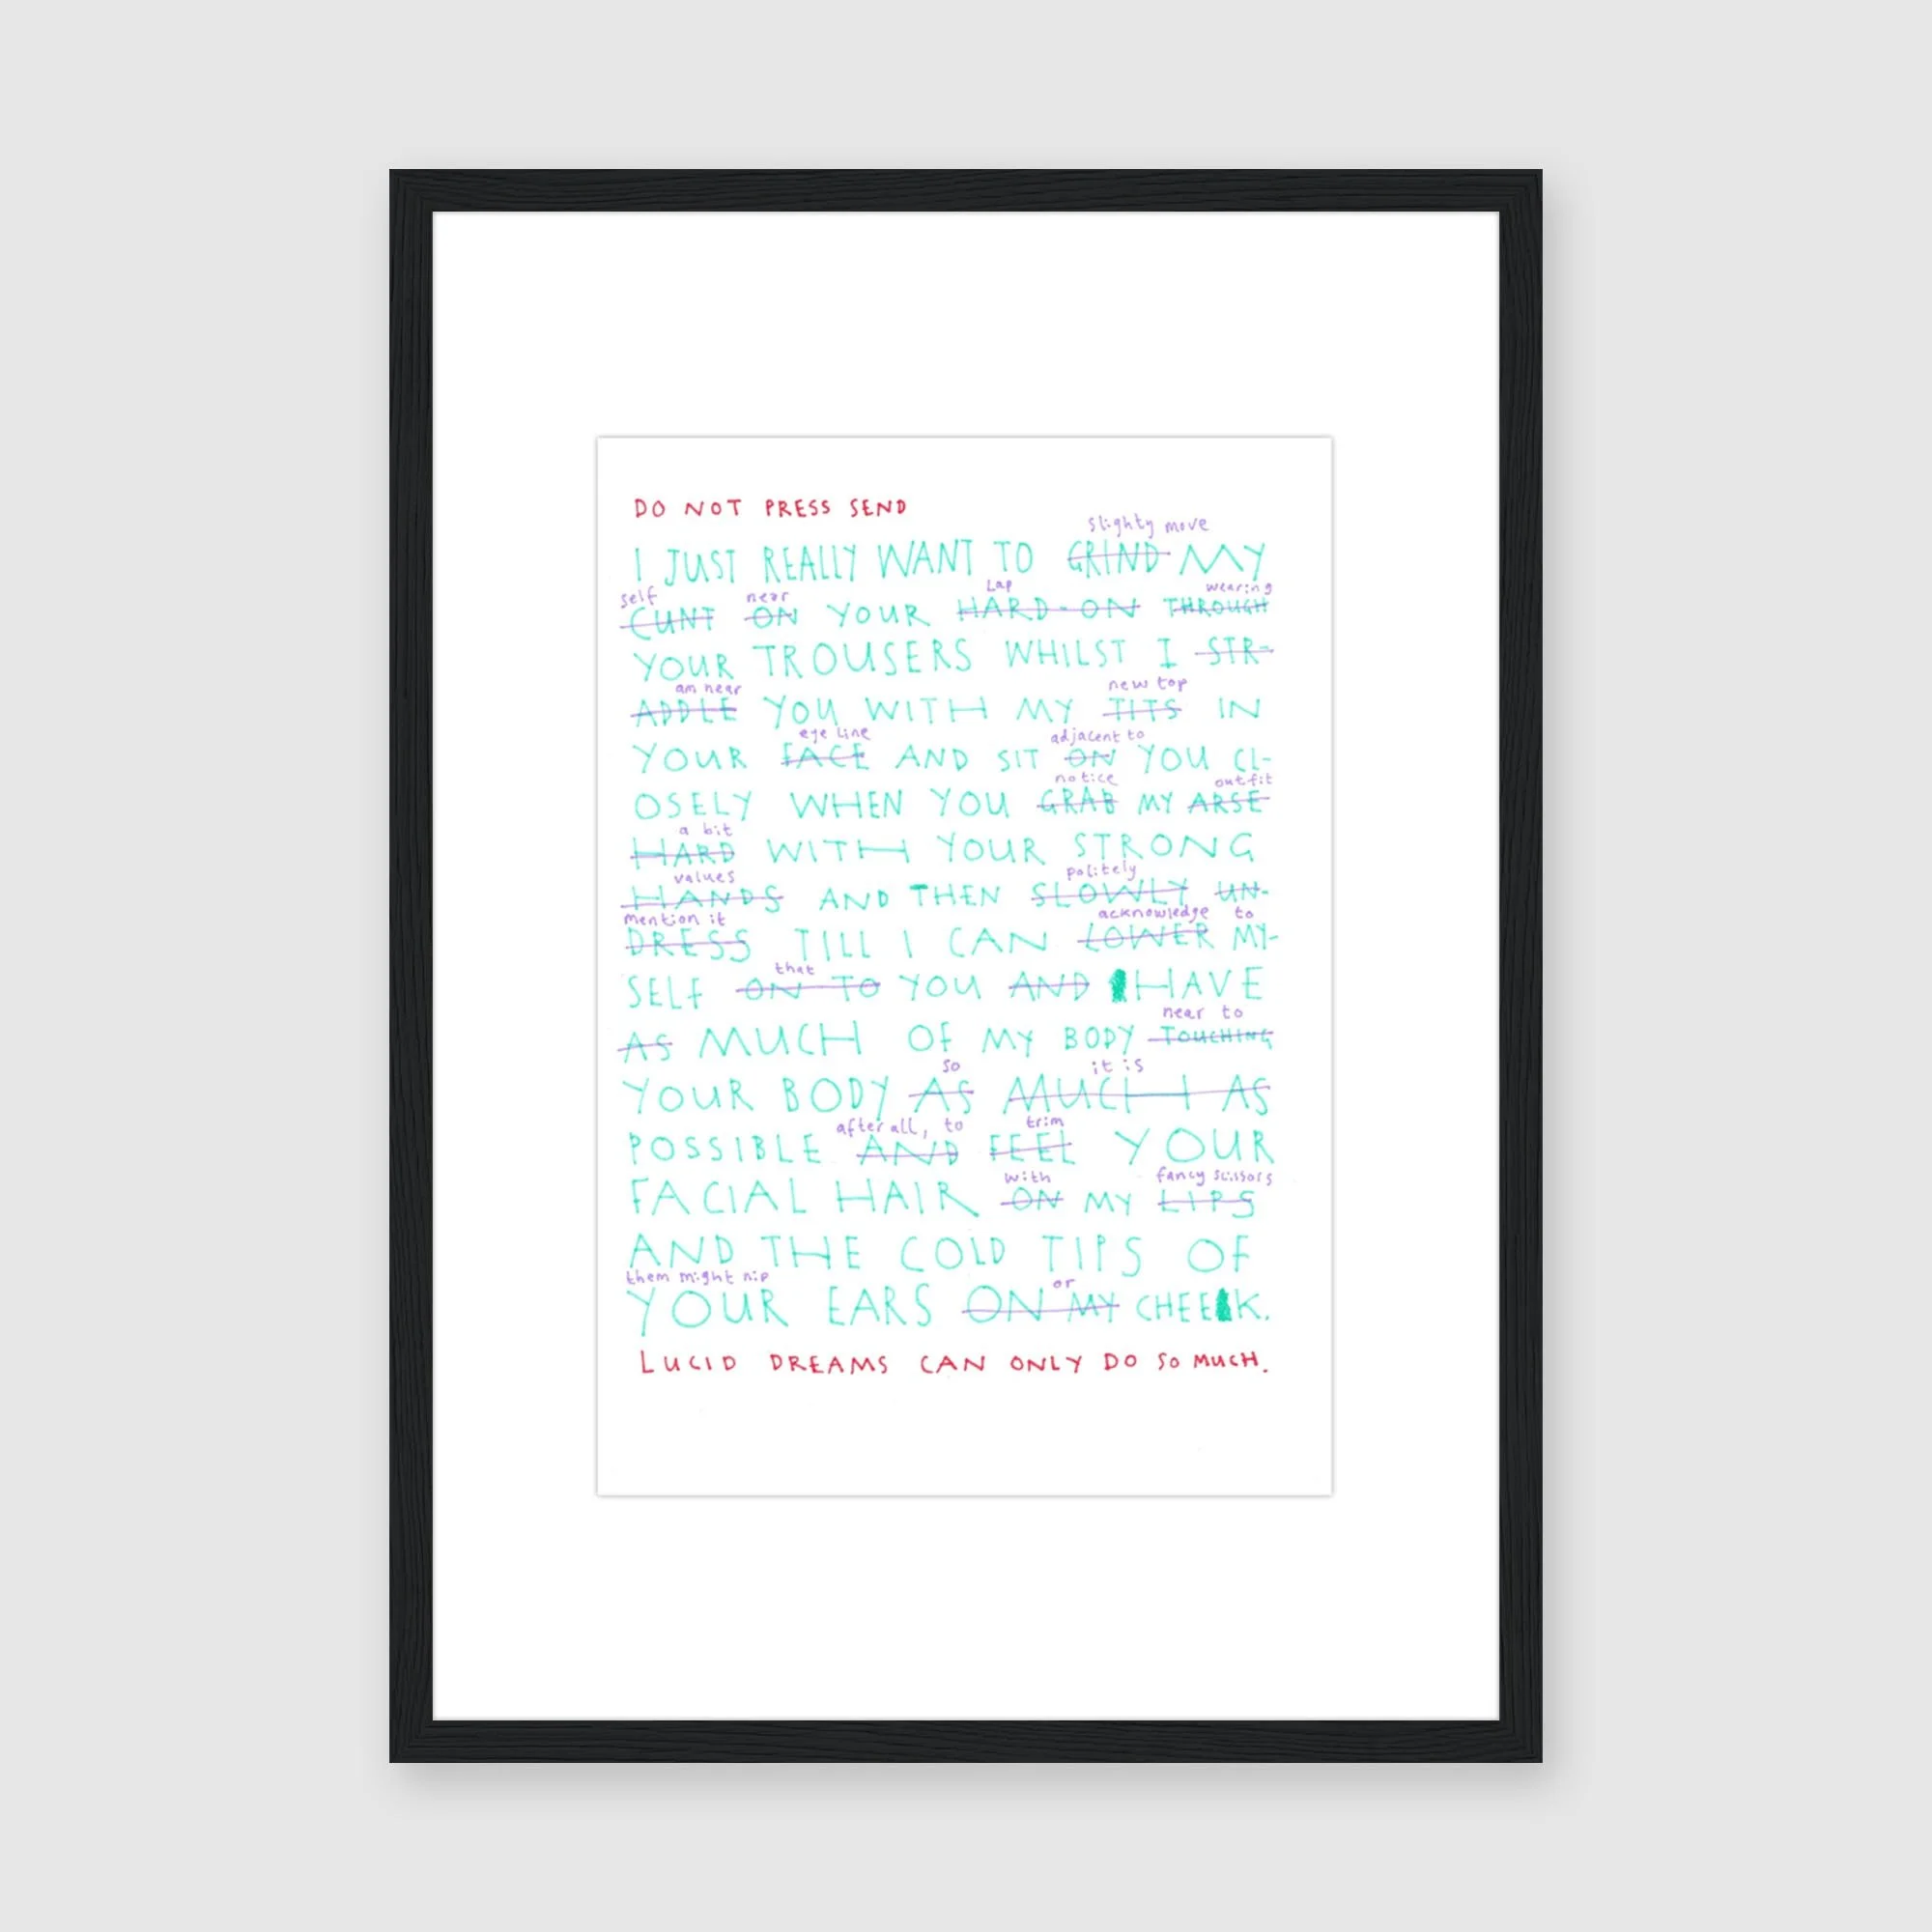 DO NOT PRESS SEND
slighty move
I JUST REALLY WANT TO GRIND MY
self near Lap wearing
CUNT ON YOUR HARD-ON THROUGH
YOUR TROUSERS WHILST I STR-
am near new top
ADDLE YOU WITH MY TITS IN
eye line adjacent to
YOUR FACE AND SIT ON YOU CL-
notice outfit
OSELY WHEN YOU GRAB MY ARSE
a bit
HARD WITH YOUR STRONG
values politely
HANDS AND THEN SLOWLY UN-
mention it acknowledge to
DRESS TILL I CAN LOWER MY-
that
SELF ON TO YOU AND HAVE
near to
AS MUCH OF MY BODY TOUCHING
so it is
YOUR BODY AS MUCH AS
after all, to trim
POSSIBLE AND FEEL YOUR
with fancy scissors
FACIAL HAIR ON MY LIPS
AND THE COLD TIPS OF
them might nip or
YOUR EARS ON MY CHEEK.
LUCID DREAMS CAN ONLY DO SO MUCH.